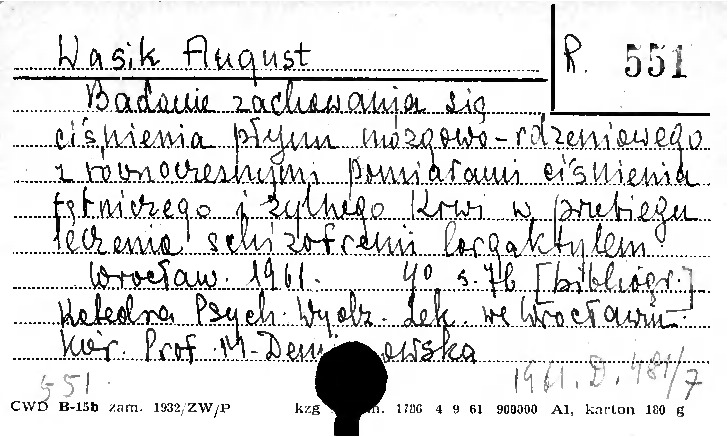 Wasik August
R. 551
Badanie zachowania się
ciśnienia płynu mózgowo-rdzeniowego
z równoczesnymi pomiarami ciśnienia
tętniczego i żylnego krwi w przebiegu
leczenia schizofrenii largaktylem
Wrocław. 1961. 4° s. 76 [bibliogr.]
Katedra Psych. Wydz. Lek. we Wrocławiu
Kier. Prof. M. Demi owska
551. 1961. D. 481/7
CWD B-15b zam. 1932/ZW/P kzg m. 1786 4 9 61 900000 A1, karton 180 g